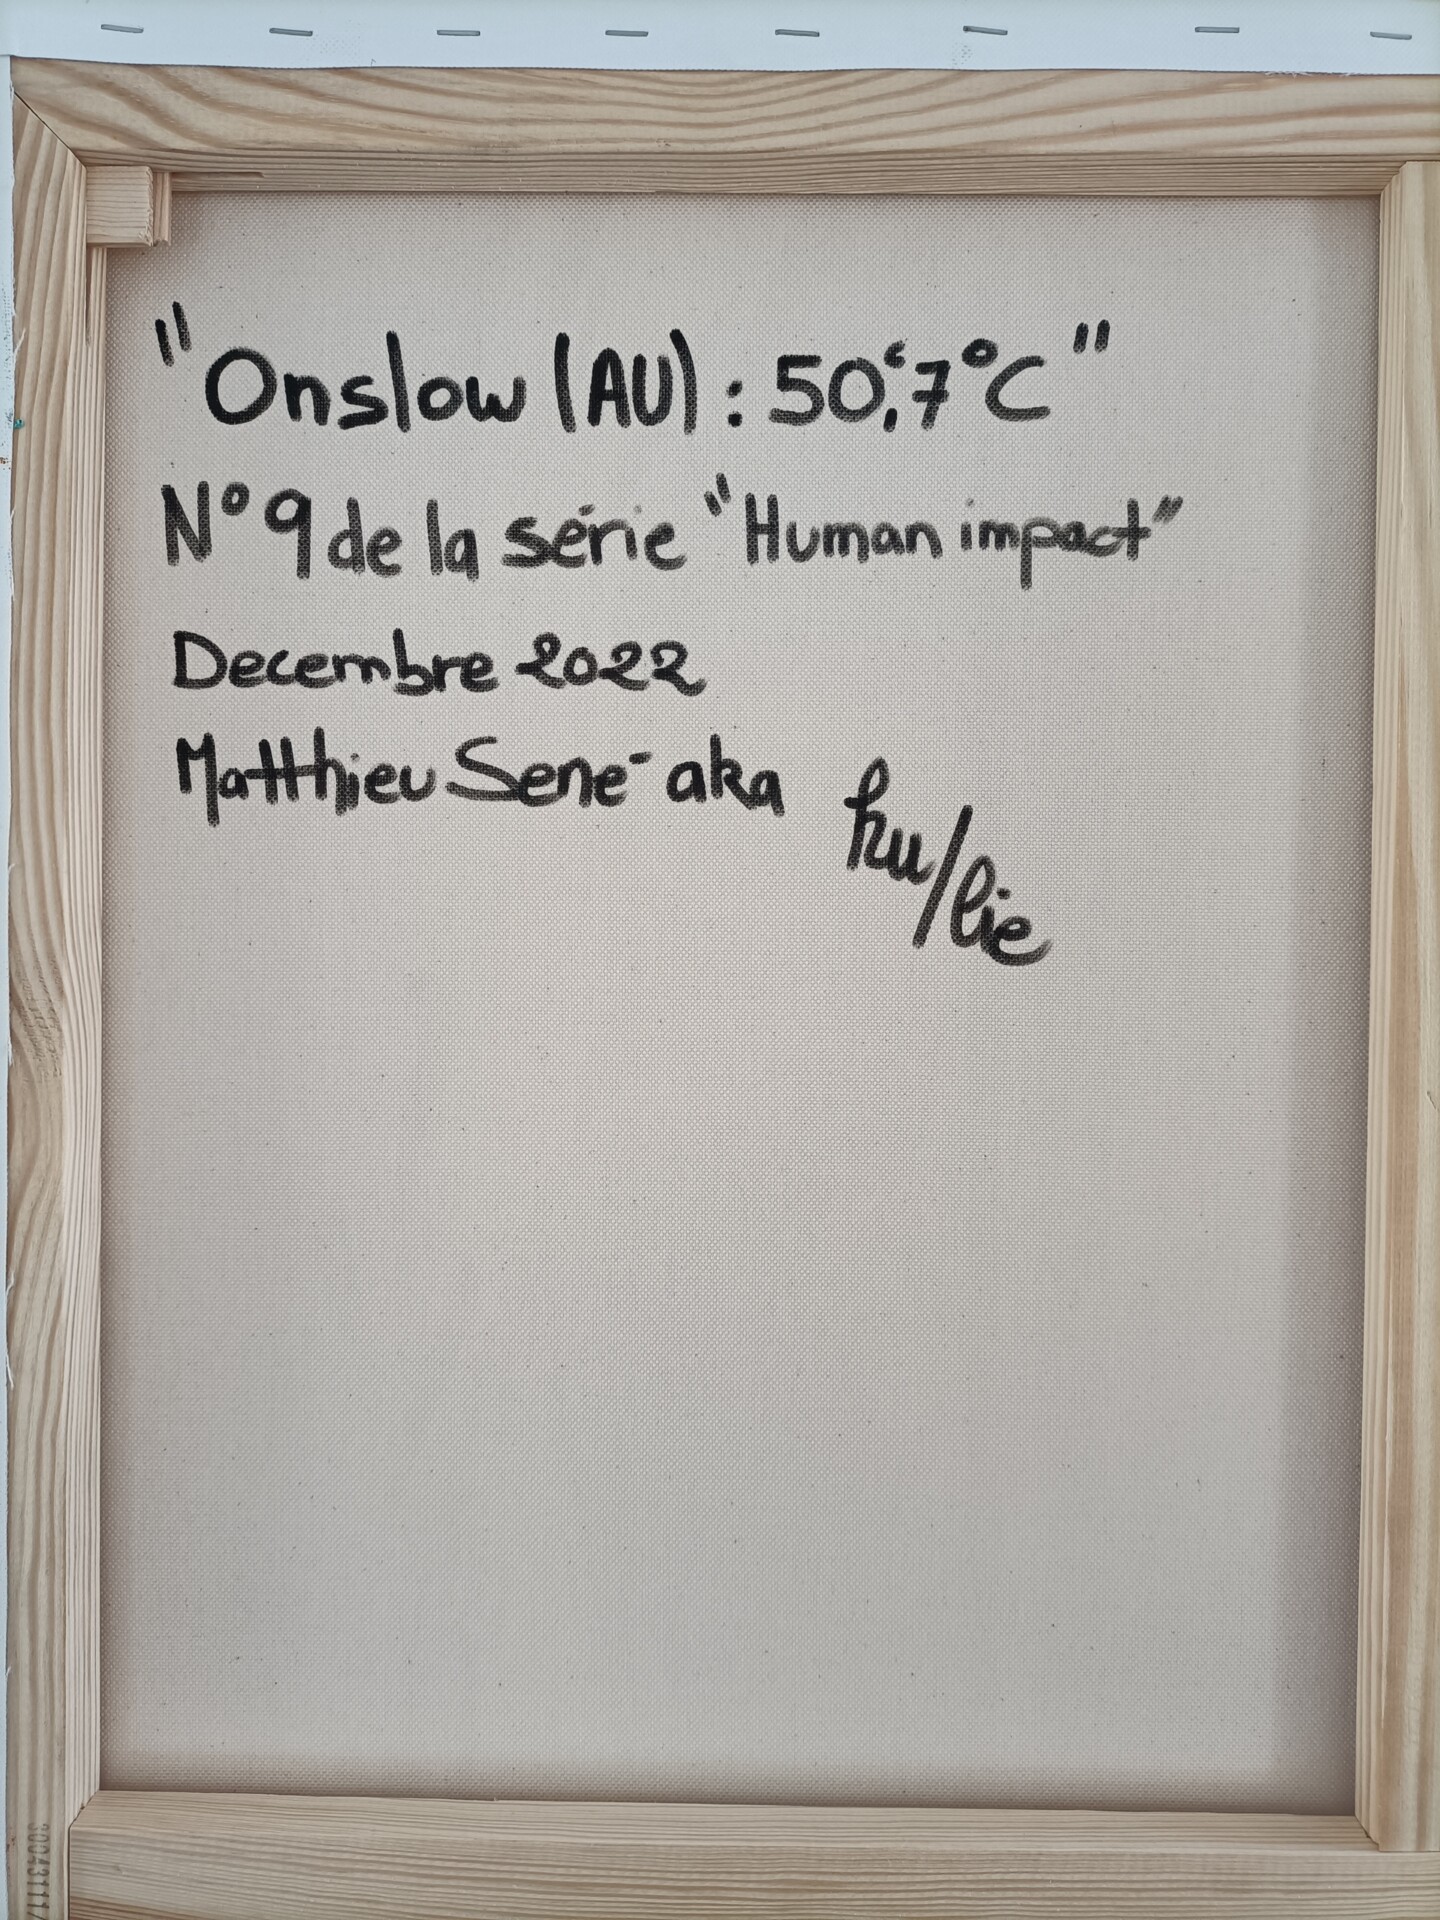 "Onslow (AU) : 50,7°C"
N° 9 de la série "Human impact"
Decembre 2022
Matthieu Sené aka
ku/lie
30043111